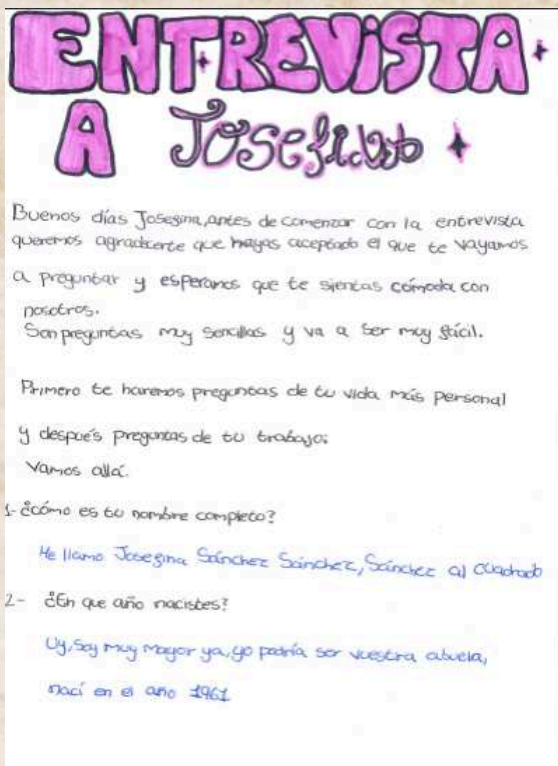 ENTREVISTA
A Josefina
Buenos días Josefina, antes de comenzar con la entrevista
queremos agradecerte que hayas aceptado el que te vayamos
a preguntar y esperamos que te sientas cómoda con
nosotros.
Son preguntas muy sencillas y va a ser muy fácil.
Primero te haremos preguntas de tu vida más personal
y después preguntas de tu trabajo:
Vamos allá.
1- ¿cómo es tu nombre completo?
Me llamo Josefina Sánchez Sánchez, Sánchez al cuadrado
2- ¿En que año nacistes?
Uy, Soy muy mayor ya, yo podría ser vuestra abuela,
nací en el año 1961